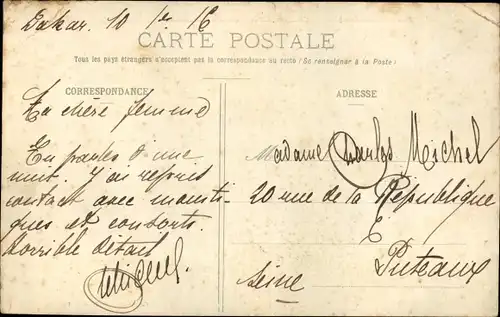 Dakar. 10
CARTE POSTALE
Tous les pays étrangers n'acceptent pas la correspondance au recto (Se renseigner à la Poste)
CORRESPONDANCE
ADRESSE
chère femme
En parles d'une
nuit. J'ai repris
contact avec mousti-
ques et consorts.
horrible détail
Michel
Madame Charles Michel
20 rue de la République
Puteaux
Seine